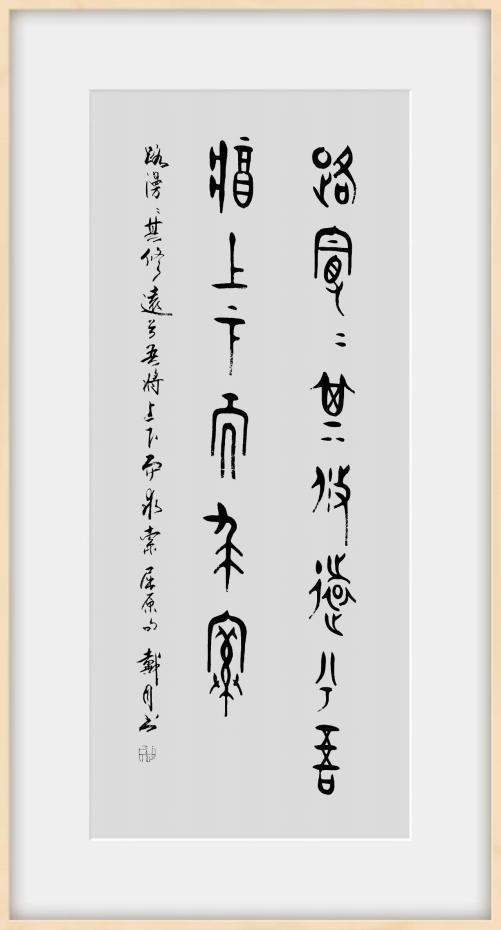 路曼〻其攸遠兮吾
將上下而求索
路漫〻其修遠兮吾將上下而求索 屈原句 戴月书